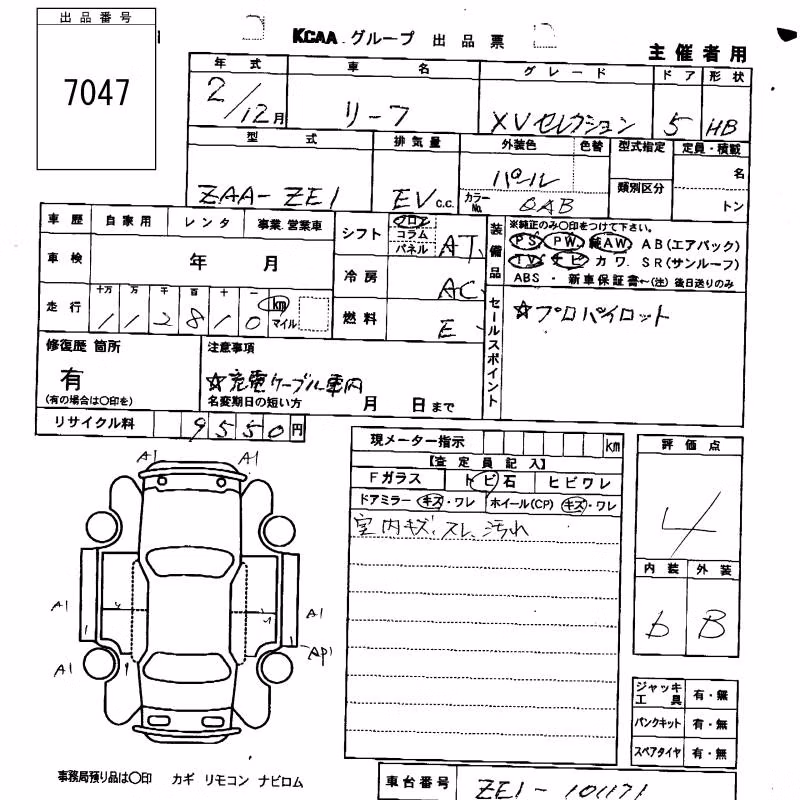 出品番号
7047
KCAA グループ 出品票
主催者用
年式 車名 グレード ドア 形状
2/12月 リーフ XVセレクション 5 HB
型式 排気量 外装色 色替 型式指定 定員・積載
ZAA-ZE1 EV c.c. パール 類別区分 名
カラーNo. QAB トン
車歴 自家用 レンタ 事業.営業車
車検 年 月
走行 十万 万 千 百 十 一
112810 km マイル
シフト フロア コラム パネル AT
冷房 AC
燃料 E
装備品
※純正のみ○印をつけて下さい。
PS PW 純AW AB(エアバック)
TV ナビ カワ. SR(サンルーフ)
ABS ・ 新車保証書←(注) 後日送りのみ
セールスポイント
☆プロパイロット
修復歴 箇所
有
(有の場合は○印を)
注意事項
☆充電ケーブル車内
名変期日の短い方 月 日まで
リサイクル料 9550円
現メーター指示 km
【査定員記入】
Fガラス トビ石 ヒビワレ
ドアミラー キズ・ワレ ホイール(CP) キズ・ワレ
室内キズ、スレ、汚れ
評価点
4
内装 外装
b B
A1 A1
A1 A1
A1 AP1
ジャッキ工具 有・無
パンクキット 有・無
スペアタイヤ 有・無
事務局預り品は○印 カギ リモコン ナビロム
車台番号 ZE1-101171